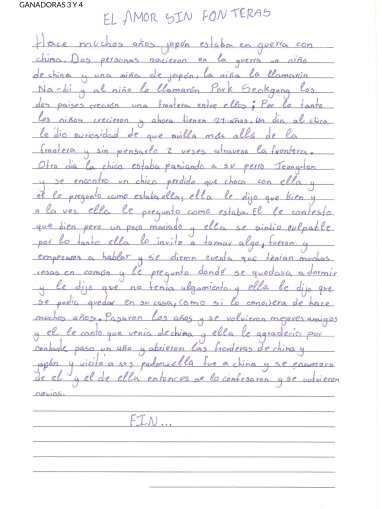 GANADORAS 3 Y 4
EL AMOR SIN FONTERAS
Hace muchos años japón estaba en guerra con
china. Dos personas nacieron en la guerra un niño
de china y una niña de japón, la niña la llamarón
Na-bi y al niño lo llamarón Park Seokgang los
dos países crearón una frontera entre ellos; Por lo tanto
los niños crecieron y ahora tienen 21 años. Un dia al chico
le dio curiosidad de que avilla más allá de la
frontera y sin pensarlo 2 veses atraveso la frontera.
Otro dia la chica estaba pasiando a su perro Teongtan
y se encontro un chico perdido que choco con ella y
el le pregunto como estaba ella, ella le dijo que bien y
a la vez ella le pregunto como estaba. El le contesto
que bien pero un poco mareado y ella se sindio culpable
por lo tanto ella lo invito a tomar algo, fueron y
empezaron a hablar y se dieron cuenta que tenian muchas
cosas en común y le pregunto donde se quedava a dormir
y le dijo que no tenía alogamiento y ella le dijo que
se podía quedar en su casa, como si lo conociera de hace
muchos años. Pasaron los años y se volvieron mejores amigos
y el le conto que venia de china y ella le agradecio por
contarle, paso un año y abrieron las fronteras de china y
japón y visitó a sos padres, ella fue a china y se enamora
de el y el de ella entonces se lo confesaron y se volvieron
novios.
FIN...